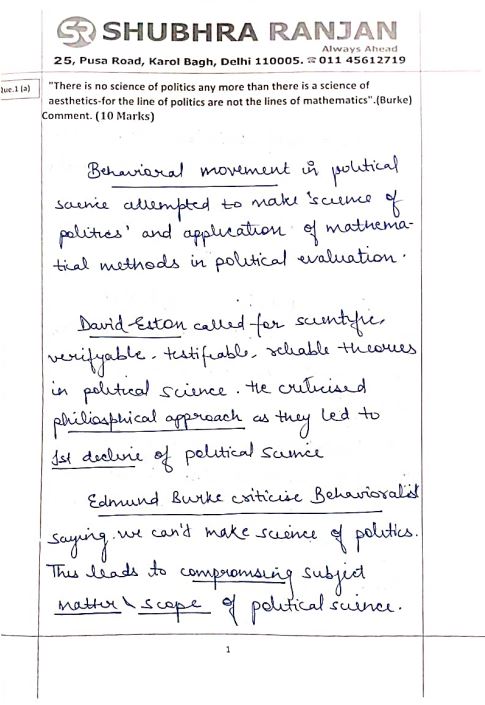 SR SHUBHRA RANJAN
Always Ahead
25, Pusa Road, Karol Bagh, Delhi 110005. ☎ 011 45612719
Que.1 (a)
"There is no science of politics any more than there is a science of
aesthetics-for the line of politics are not the lines of mathematics".(Burke)
Comment. (10 Marks)
Behavioral movement in political
science attempted to make 'science of
politics' and application of mathema-
tical methods in political evaluation.
David-Eston called for scientific,
verifyable, testifiable, reliable theories
in political science. He criticised
philiosphical approach as they led to
1st decline of political science
Edmund Burke criticise Behavioralist
saying we can't make science of politics.
This leads to compromising subject
matter \ scope of political science.
1